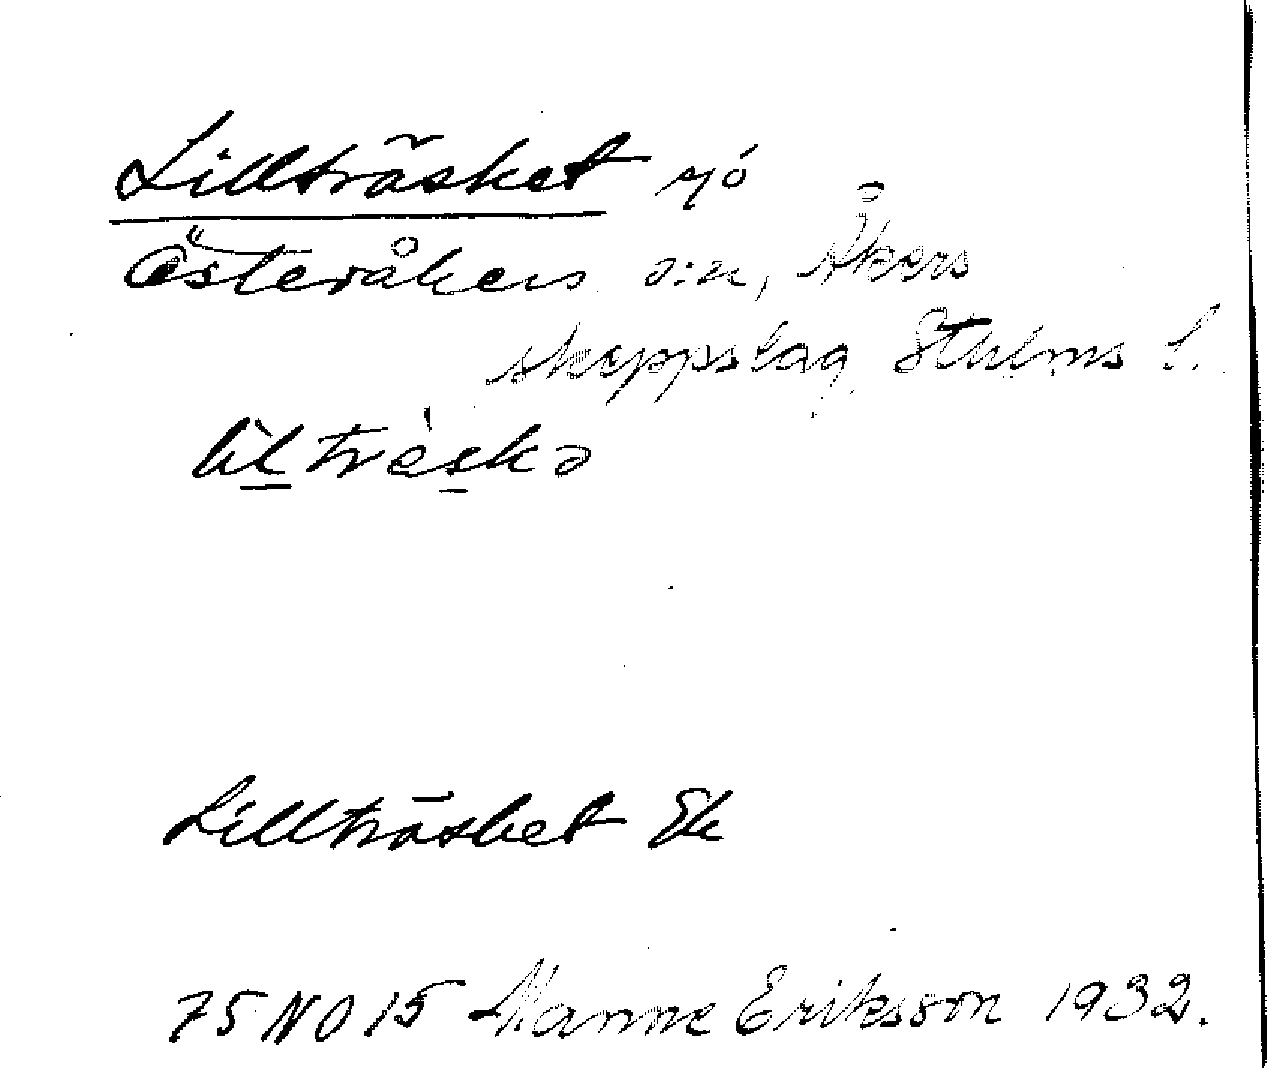 Lillträsket sjö
Österåkers s:n, Åkers
skeppslag Sthlms l.
lìlträskə
Lillträsket Ek
75 NO 15 Manne Eriksson 1932.